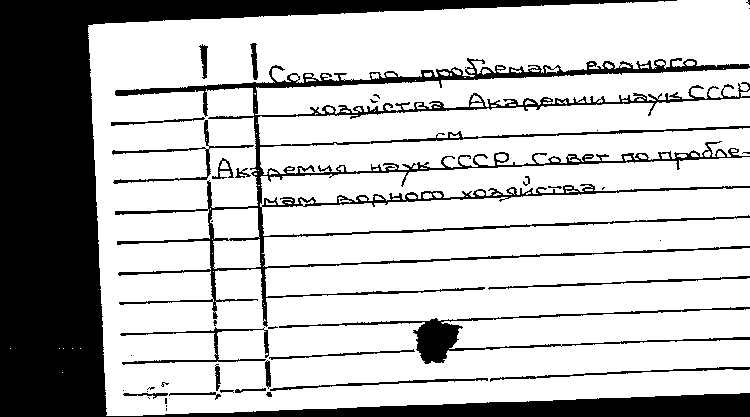 Совет по проблемам водного
хозяйства Академии наук СССР
см
Академия наук СССР. Совет по пробле-
мам водного хозяйства.